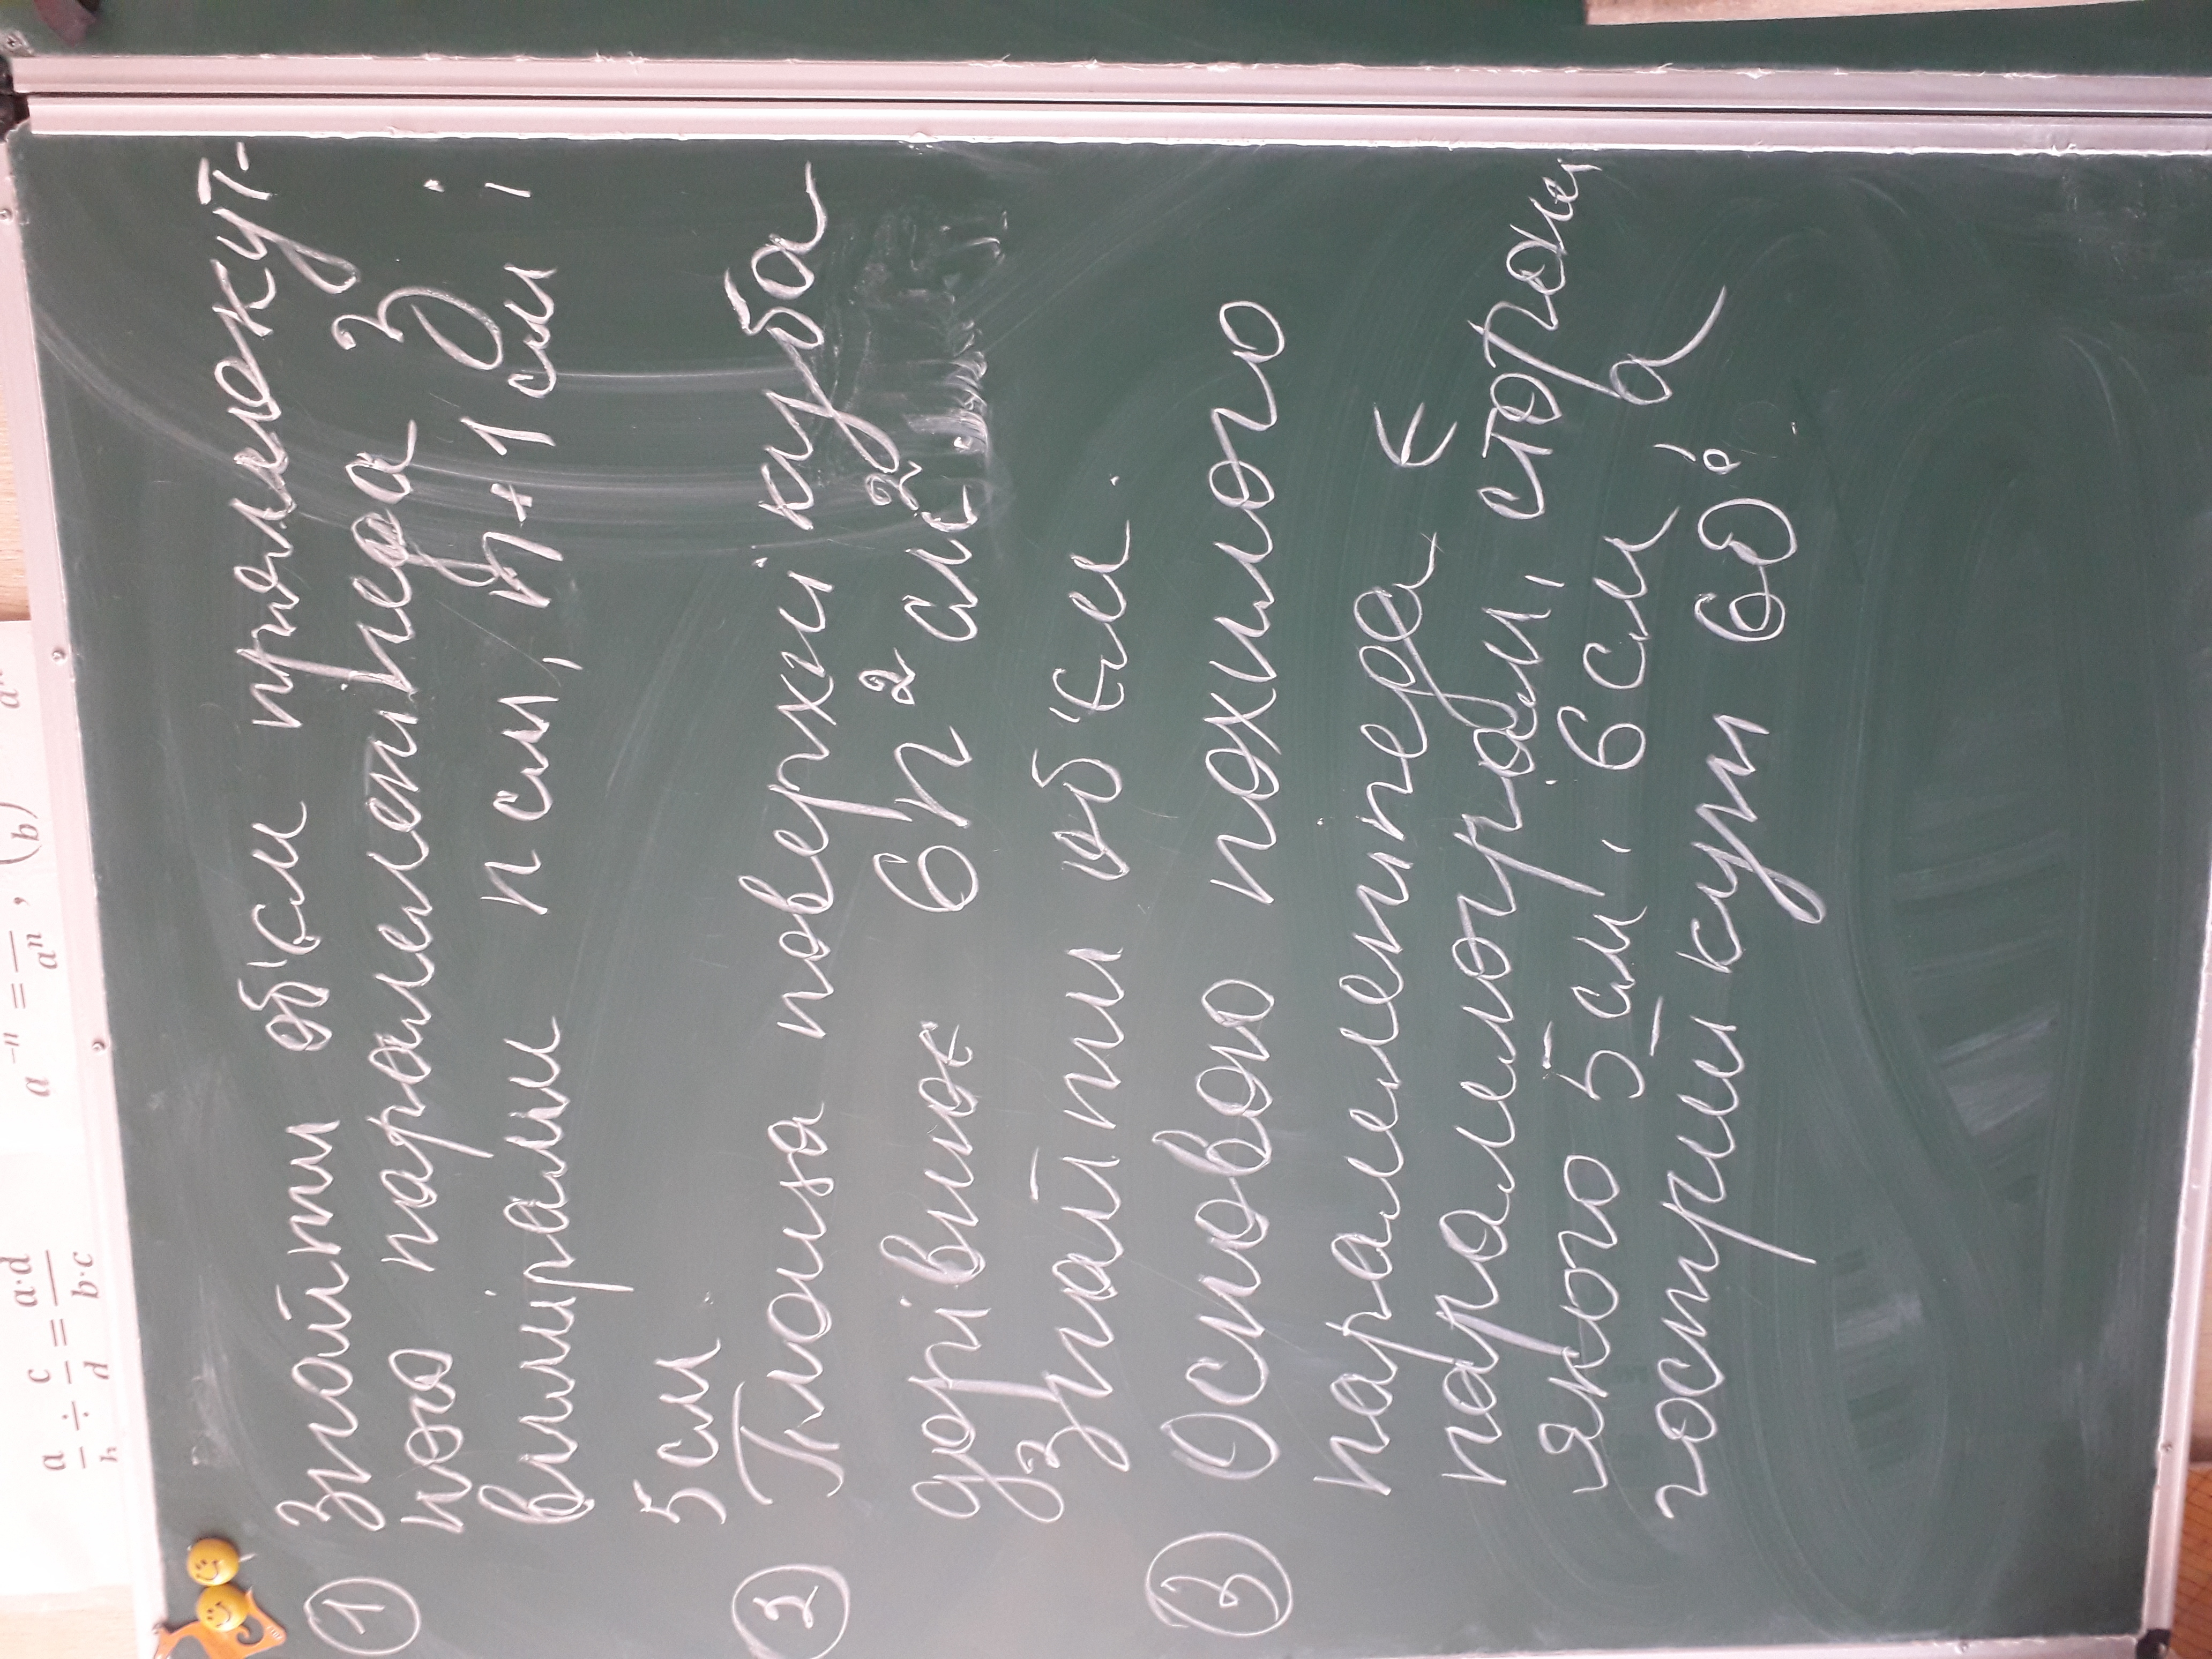 a/b ÷ c/d = a·d/b·c
a⁻ⁿ = 1/aⁿ , (b)
① Знайти об'єм прямокут-
ного паралелепіпеда з
вимірами n см, n+1 см і
5 см
② Площа поверхні куба
дорівнює 6n² см².
Знайти об'єм.
③ Основою похилого
паралелепіпеда є
паралелограм, сторони
якого 5 см, 6 см, а
гострий кут 60°.